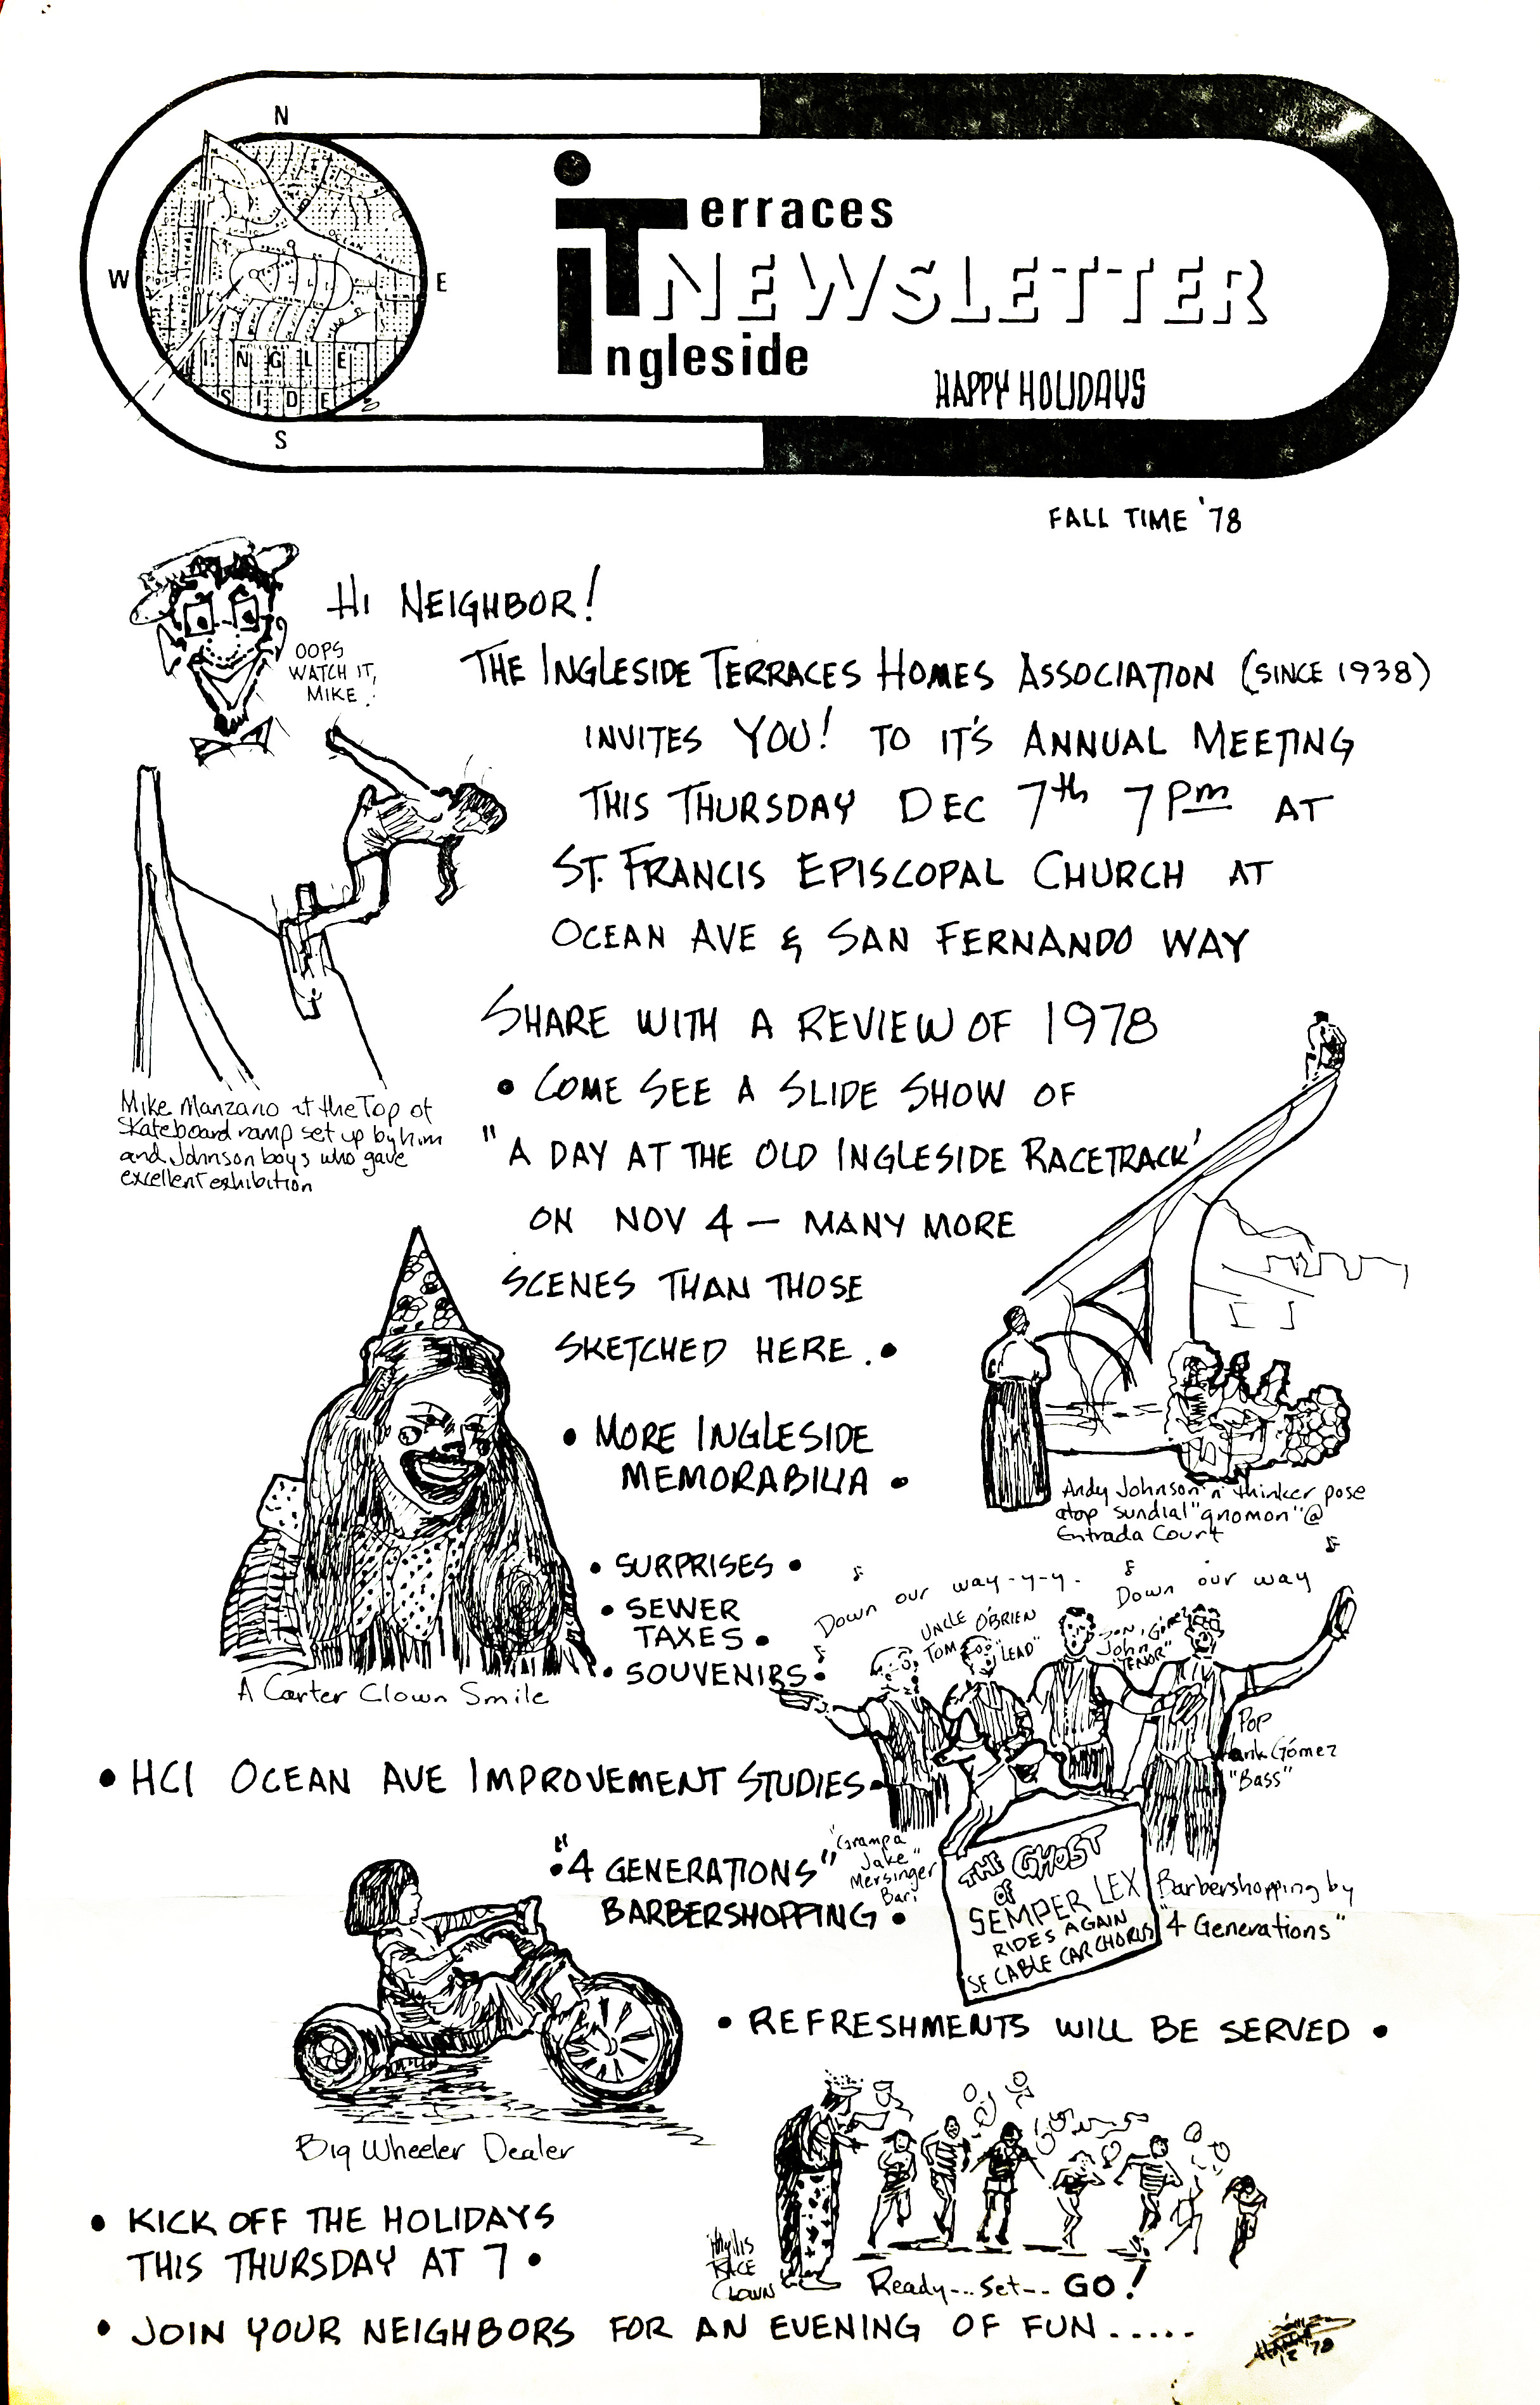 N
W
E
S
INGLE
SIDE
iTerraces
NEWSLETTER
ingleside
HAPPY HOLIDAYS
FALL TIME '78
HI NEIGHBOR!
OOPS
WATCH IT,
MIKE!
THE INGLESIDE TERRACES HOMES ASSOCIATION (SINCE 1938)
INVITES YOU! TO IT'S ANNUAL MEETING
THIS THURSDAY DEC 7th 7 Pm AT
ST. FRANCIS EPISCOPAL CHURCH AT
OCEAN AVE & SAN FERNANDO WAY
SHARE WITH A REVIEW OF 1978
• COME SEE A SLIDE SHOW OF
"A DAY AT THE OLD INGLESIDE RACETRACK'
ON NOV 4 — MANY MORE
SCENES THAN THOSE
SKETCHED HERE. •
Mike Manzano at the Top of
skateboard ramp set up by him
and Johnson boys who gave
excellent exhibition
• MORE INGLESIDE
MEMORABILIA •
Andy Johnson 'n' thinker pose
atop sundial "gnomon" @
Entrada Court
• SURPRISES •
• SEWER
TAXES •
• SOUVENIRS •
A Carter Clown Smile
Down our way-y-y.
Down our way
UNCLE O'BRIEN
TOM "LEAD"
John
"TENOR"
Pop
Hank Gómez
"Bass"
• HCI OCEAN AVE IMPROVEMENT STUDIES •
• "4 GENERATIONS"
BARBERSHOPPING •
"Grampa
Jake"
Mersinger
Bari
THE GHOST
OF
SEMPER LEX
RIDES AGAIN
SF CABLE CAR CHORUS
Barbershopping by
"4 Generations"
• REFRESHMENTS WILL BE SERVED •
Big Wheeler Dealer
• KICK OFF THE HOLIDAYS
THIS THURSDAY AT 7 •
Phyllis
RACE
CLOWN
Ready--- Set-- GO!
• JOIN YOUR NEIGHBORS FOR AN EVENING OF FUN.....
12 '78